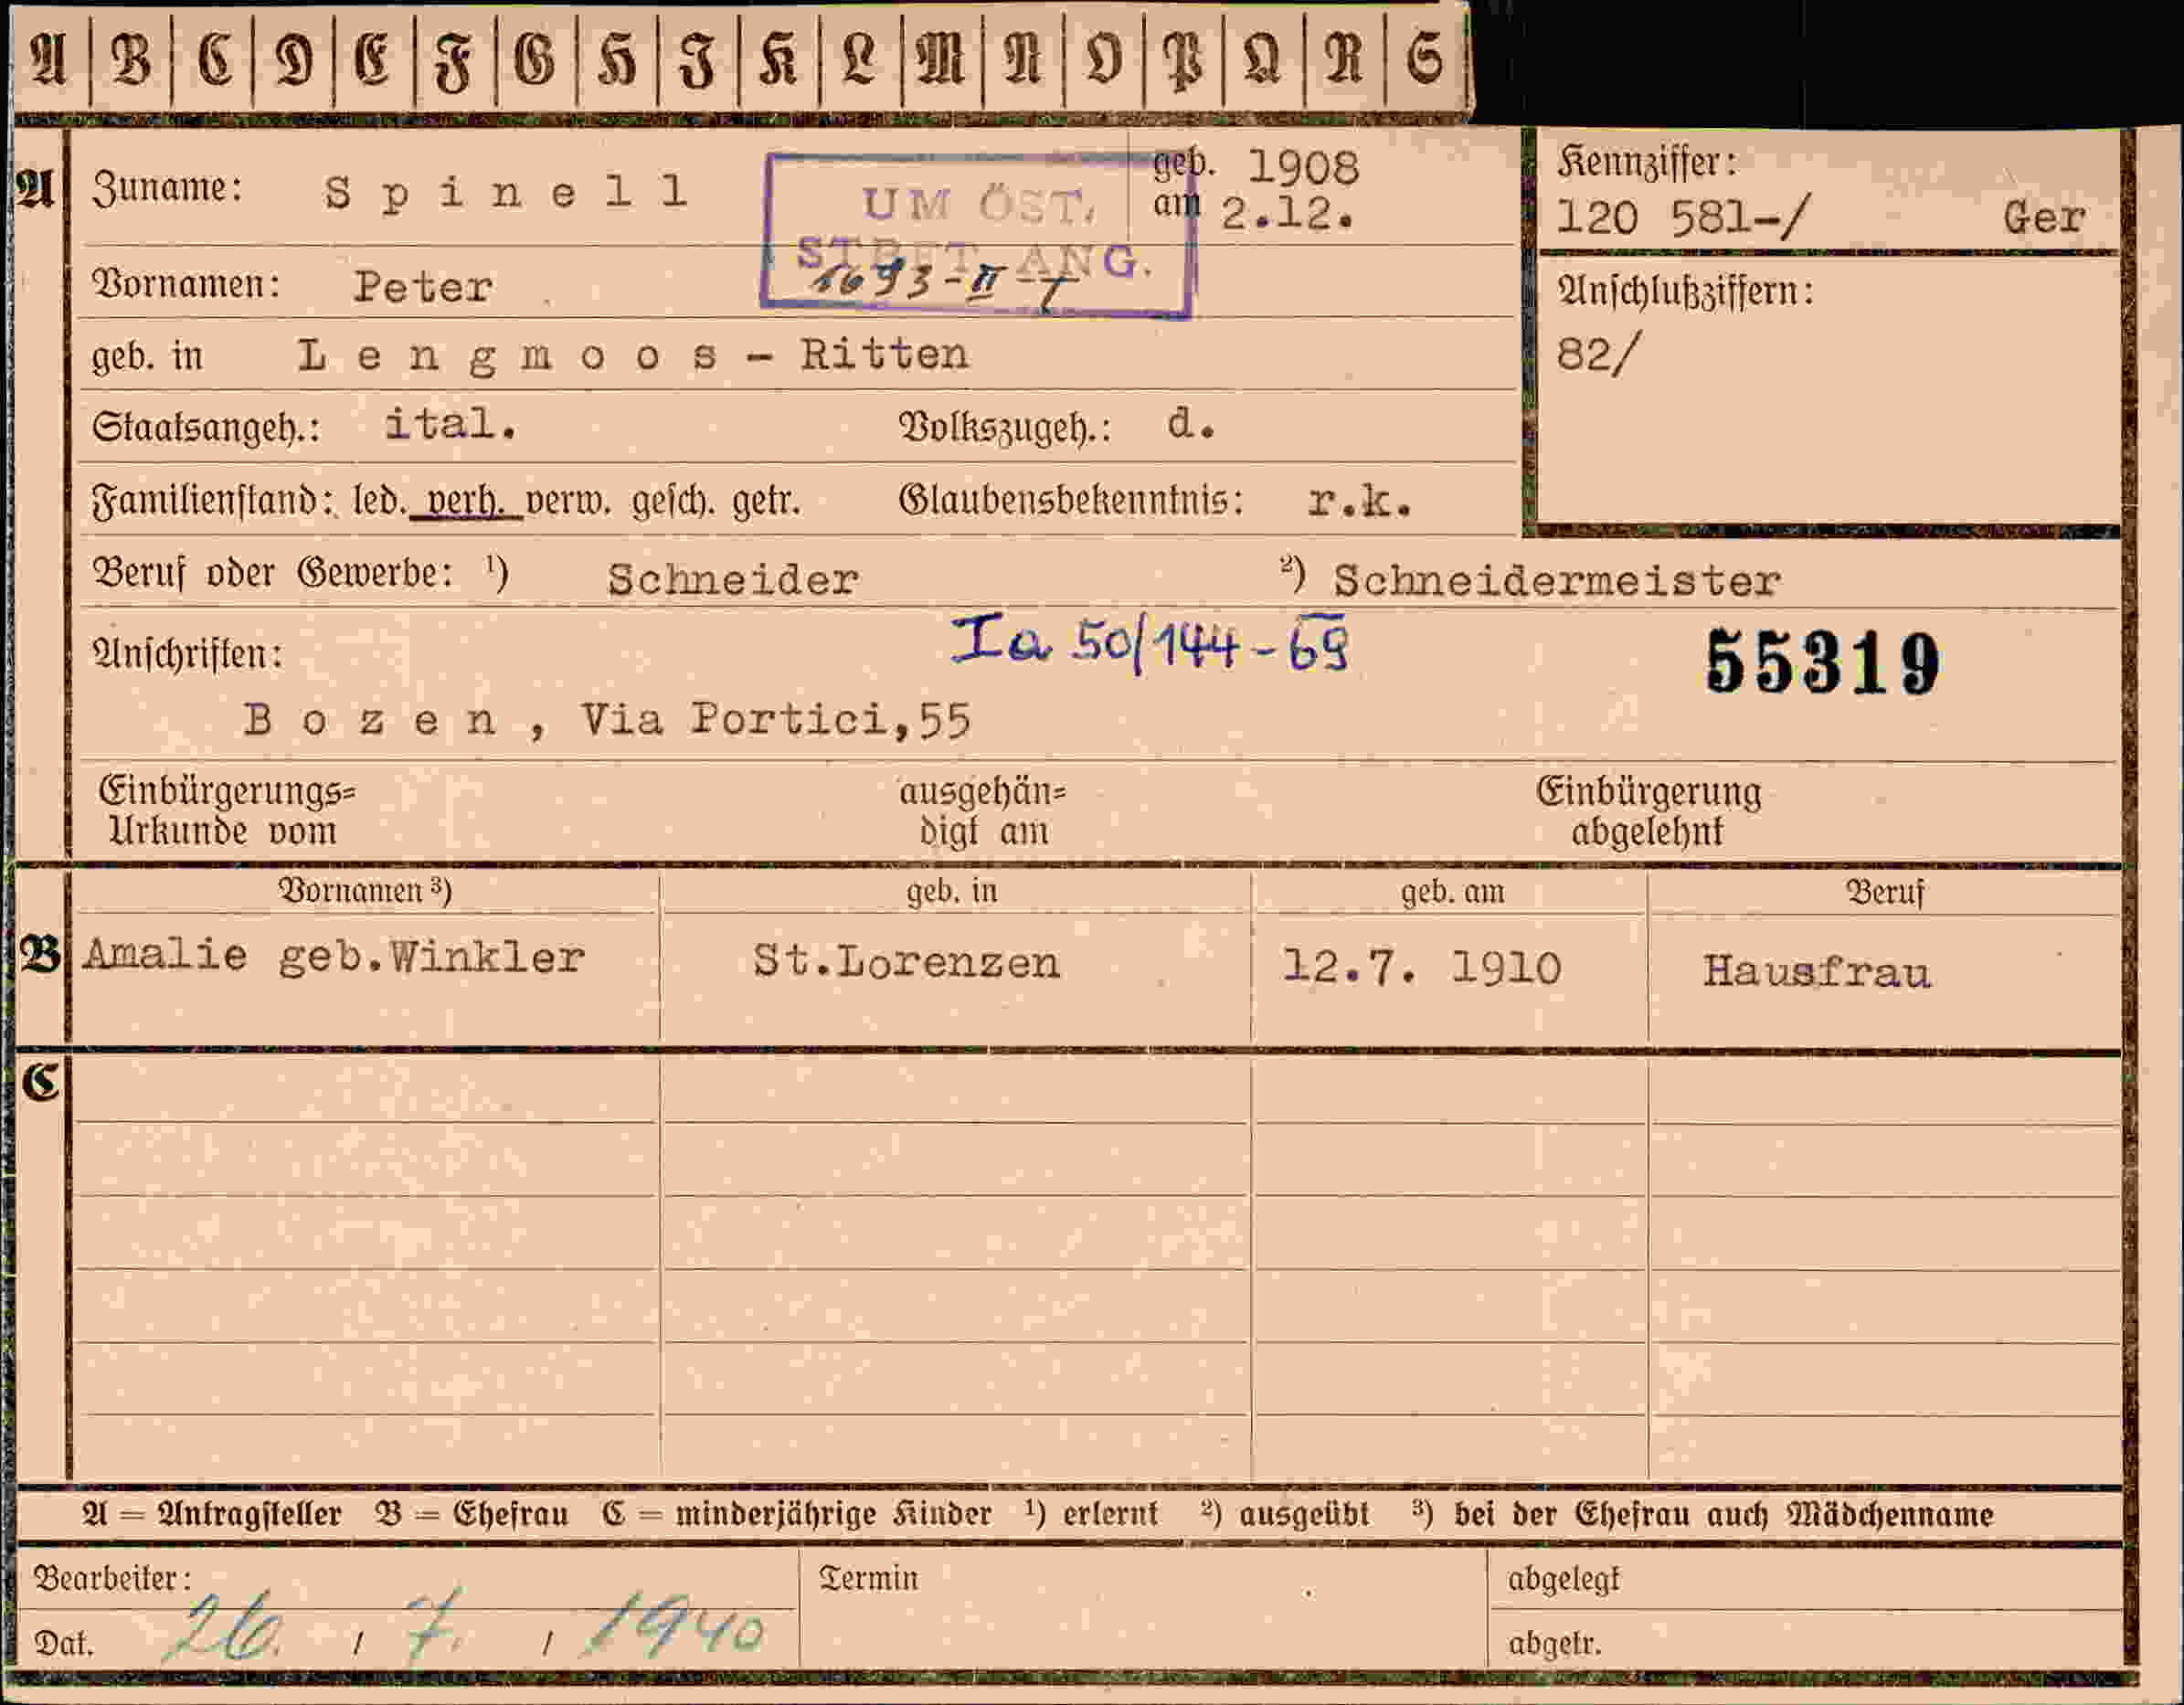 A B C D E F G H I K L M N O P Q R S
A Zuname: Spinell geb. 1908
am 2.12.
UM ÖST.
STBFT ANG.
1693-II-T
Kennziffer:
120 581-/ Ger
Vornamen: Peter
Anschlußziffern:
82/
geb. in Lengmoos - Ritten
Staatsangeh.: ital. Volkszugeh.: d.
Familienstand: led. verh. verw. gesch. getr. Glaubensbekenntnis: r.k.
Beruf oder Gewerbe: ¹) Schneider ²) Schneidermeister
Anschriften: Ia 50/144-69 55319
Bozen, Via Portici,55
Einbürgerungs= ausgehän= Einbürgerung
Urkunde vom digt am abgelehnt
Vornamen ³) geb. in geb. am Beruf
B Amalie geb.Winkler St.Lorenzen 12.7. 1910 Hausfrau
C
A = Antragsteller B = Ehefrau C = minderjährige Kinder ¹) erlernt ²) ausgeübt ³) bei der Ehefrau auch Mädchenname
Bearbeiter: Termin abgelegt
Dat. 26. / 7. / 1940 abgetr.